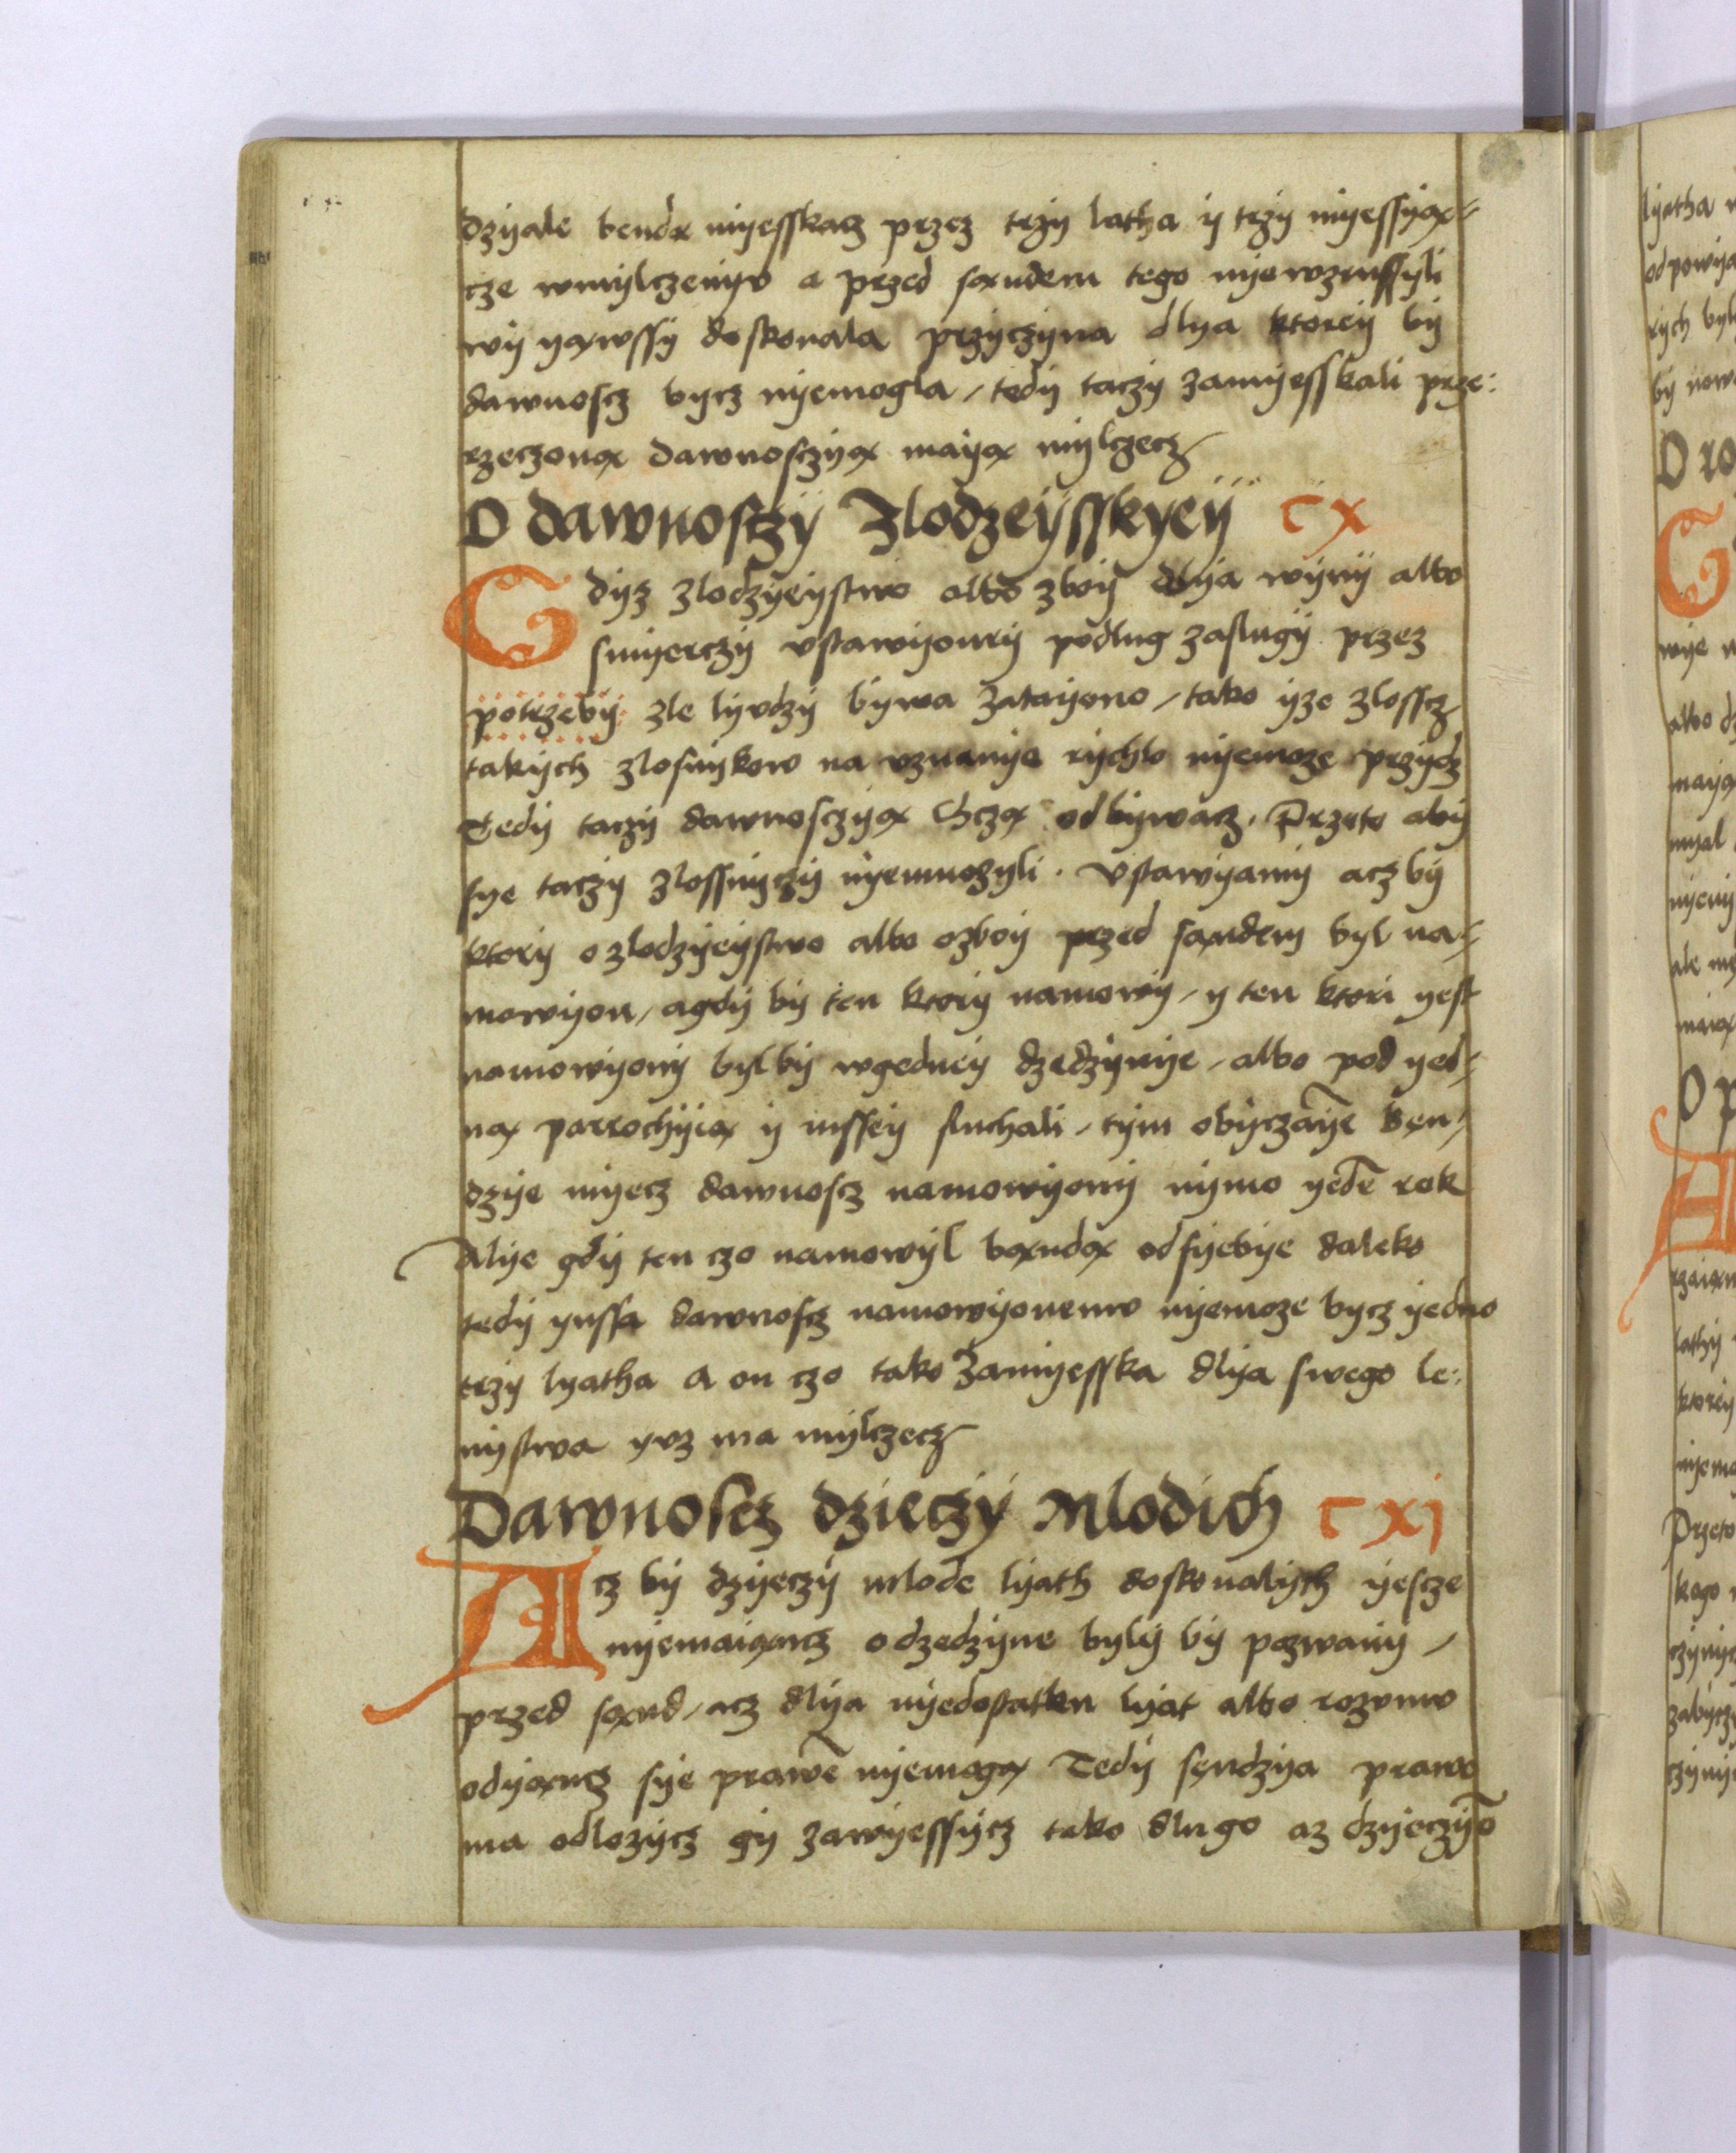 dzyale bendx myesskacz przez trzy latha y trzy myessyax-
cze wmylczenyv a przed sxndem tego nyewzrussyly
wy yxwssy doskonala przyczyna dlya ktorey by
dawnoscz bycz nyemogla / tedy taczy zamyesskali prze:
rzeczonx dawnosczyx mayx mylczecz
O dawnosczy Zlodzeysskyey CX
Gdyz zlodzyeystwo albo zboy dlya wyny albo
smyerczy vstawyoney podlug zaslugy przez
potrzeby zle lyvdzy bywa zatayono / tako yze zlosscz
takych zlosnykow na vznanye rychlo nyemoze przydz
Tedy taczy dawnosczyx chczx odbywacz. Przeto aby
sye taczy zlossnyczy nyemnozyli. Vstawyamy acz by
ktory o zlodzyeystwo albo ozboy przed sxndem byl na-
mowyon / agdy by ten ktory namowy / y ten ktori yest
namowyony bylby wgedney dzedzynye / albo pod yed-
nx parrochyix y mssey sluchali / tym obyczaye ben-
dzye myecz dawnoscz namowyony nymo yede rok
Alye gdy ten czo namowyl bxndx odsyebye daleko
tedy ynssa dawnoscz namowyonemv nyemoze bycz yedno
trzy lyatha A on czo tako zamyesska dlya swego le:
nystwa yvz ma mylczecz
Dawnoscz dzieczy Mlodich CXj
Acz by dzyeczy mlode lyath doskonalych yescze
nyemaixncz o dzedzyne byly by pozwany /
przed sxnd / acz dlya nyedostatku lyat albo rozvmv
odyxncz sye prawe nyemogx Tedy sendzya prawo
ma odlozycz gy zawyessycz tako dlugo az dzyeczyo